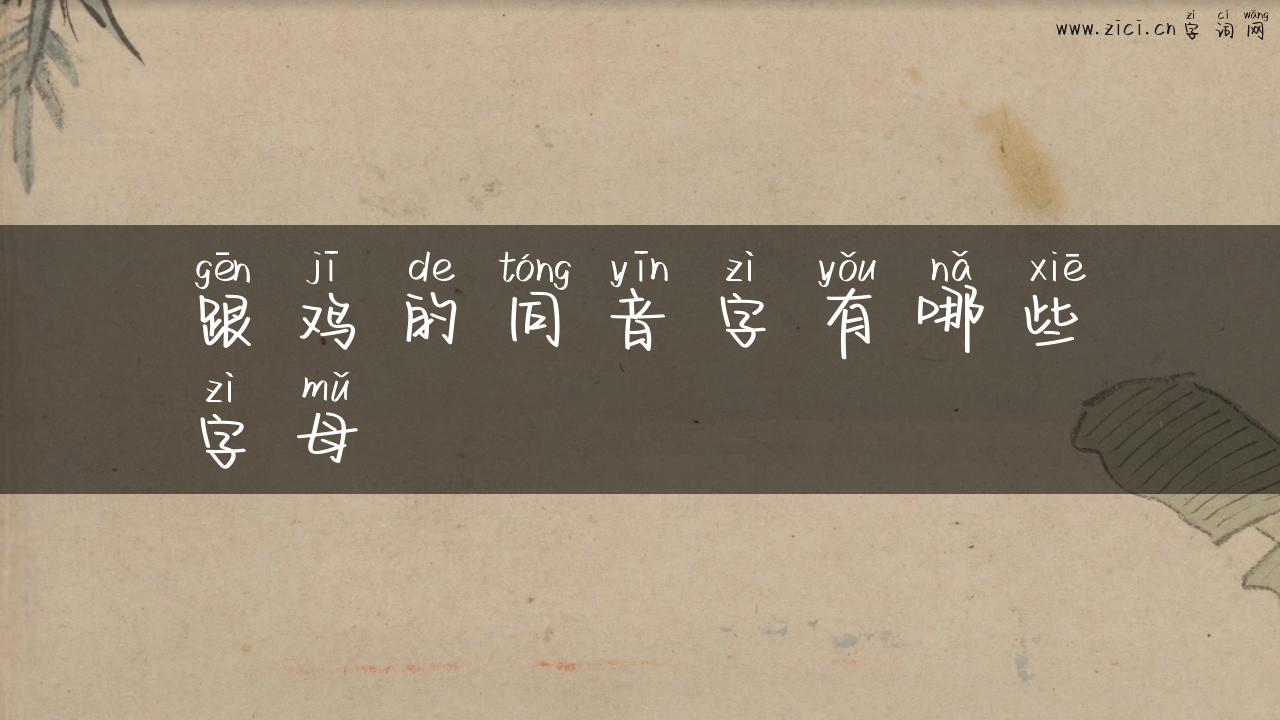 zì cí wǎng
www.zici.cn 字词网
gēn jī de tóng yīn zì yǒu nǎ xiē
跟鸡的同音字有哪些
zì mǔ
字母